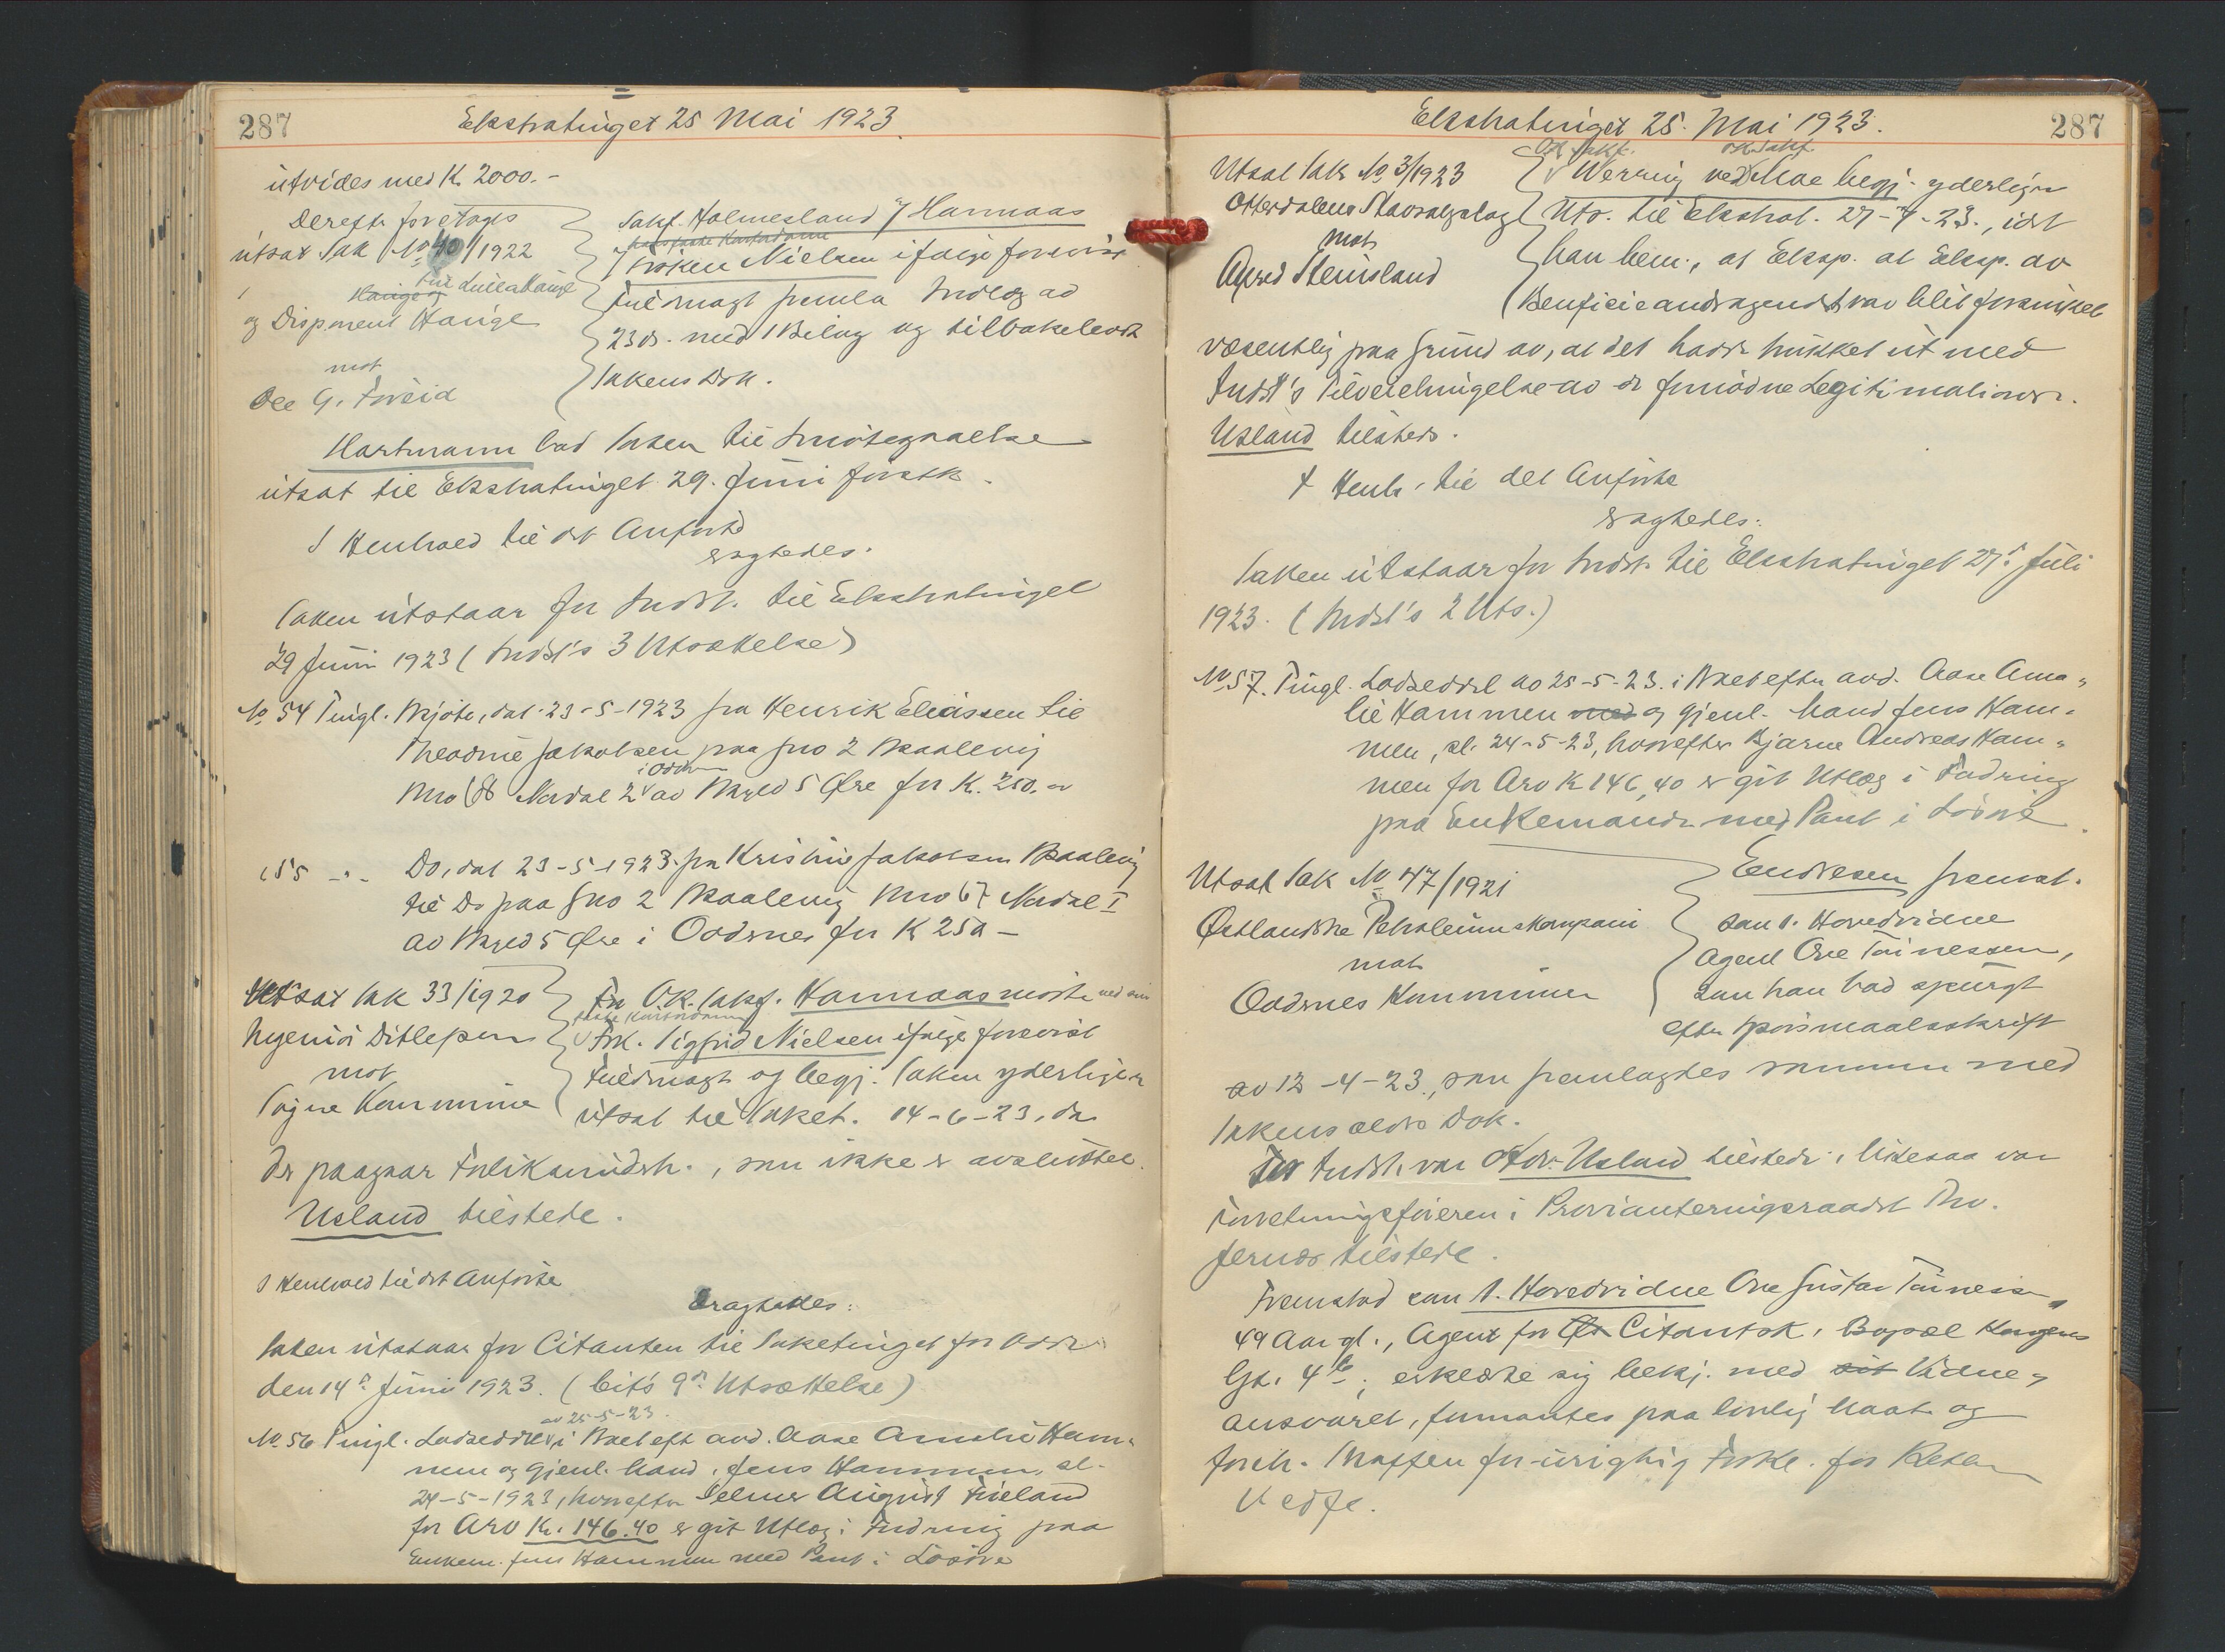 287
Ekstratinget 25 Mai 1923.
utvides med K. 2000.-
Derefter foretages
utsat Sak No 40/1922
Frk Lulla Hauge
og Disponent Hauge
mot
Ole G. Tveid
Sakf. Holmesland v/ Hannaas
v/ Frøken Nielsen ifølge forevist
Fuldmagt fremla Indlæg av
23 ds. med 1 Bilag og tilbakeleverte
Sakens Dok.
Hartmann bad Saken til Imøtegaaelse
utsat til Ekstratinget 29. Juni førstk.
I Henhold til det Anførte
eragtedes:
Saken utstaar for Indst. til Ekstratinget
29 Juni 1923 (Indst's 3 Utsættelse)
No 54 Tingl. Skjøte, dat. 23-5-1923 fra Henrik Eliassen til
Theodine Jakobsen paa Gno 2 Skaalevig
i Oddernes
Bno 68 Nerdal 2 av Skyld 5 Øre for K. 250.-
" 55 -"- Do, dat 23-5-1923 fra Kristine Jakobsen Skaalevig
til Do paa Gno 2 Skaalevig Bno 67 Nerdal I
av Skyld 5 Øre i Oddernes for K 250 -
Utsat Sak 33/1920
Ingeniør Ditlefsen
mot
Søgne Kommune
For O.R. Sakf. Hannaas møtte ved sin
faste Kontordame
Frk. Sigfrid Nielsen ifølge forevist
Fuldmagt og begj. Saken yderligere
utsat til Saket. 14-6-23, da
der paagaar Forliksunderh., som ikke er avsluttet.
Usland tilstede.
I Henhold til det Anførte
Eragtedes:
Saken utstaar for Citanten til Saketinget for Odder.
den 14de Juni 1923. (Cit's 9de Utsættelse)
av 25-5-23.
No. 56 Tingl. Lodseddel i Boet eft avd. Aase Amalie Ham-
men og gjenl. Mand, Jens Hammen, sl.
24-5-1923, hvorefter Selmer August Frøland
for Arv Kr. 146.40 er git Utlæg i Fordring paa
Enkem. Jens Hammen med Pant i Løsøre
Ekstratinget 25. Mai 1923.
287
Utsat Sak No 3/1923
Otterdalens Skovsalgslag
mot
Alfred Stensland
OR Sakf. OR Sakf.
Werring ved Moe begj. yderligere
Uts. til Ekstrat. 27-7-23., idet
han bem., at Eksp. at Eksp. av
Benificieandragendet var blit forsinket
væsentlig paa Grund av, at det hadde trukket ut med
Indst's Tilveiebringelse av de fornødne Legitimationer.
Usland tilstede.
I Henh. til det Anførte
eragtedes:
Saken utstaar for Indst. til Ekstratinget 27de Juli
1923. (Indst's 2 Uts.)
No 57. Tingl. Lodseddel av 25-5-23. i Boet efter avd. Aase Ama-
lie Hammen med og gjenl. Mand Jens Ham-
men, sl. 24-5-23, hvorefter Bjarne Andreas Ham-
men for Arv K 146,40 er git Utlæg i Fordring
paa Enkemanden med Pant i Løsøre.
Utsat Sak No 47/1921
Østlandske Petroleumskompani
mot
Oddernes Kommune
Endresen fremst.
som 1. Hovedvidne
Agent Ove Tønnessen,
som han bad spurgt
efter Spørsmaalsskrift
av 12-4-23, som fremlagdes sammen med
Sakens ældre Dok.
For Indst. var Adv. Usland tilstede, likesaa var
Forretningsføreren i Provianteringsraadet
Jernæs tilstede.
Fremstod som 1. Hovedvidne Ove Gustav Tønnessen,
49 Aar gl., Agent for Citantsk, Bopæl Kongens
Gt. 4b; erklærte sig bekj. med sit Vidne-
ansvaret, formantes paa lovlig Maate og
foreh. Straffen for urigtig Forkl. for Retten
Vedge.